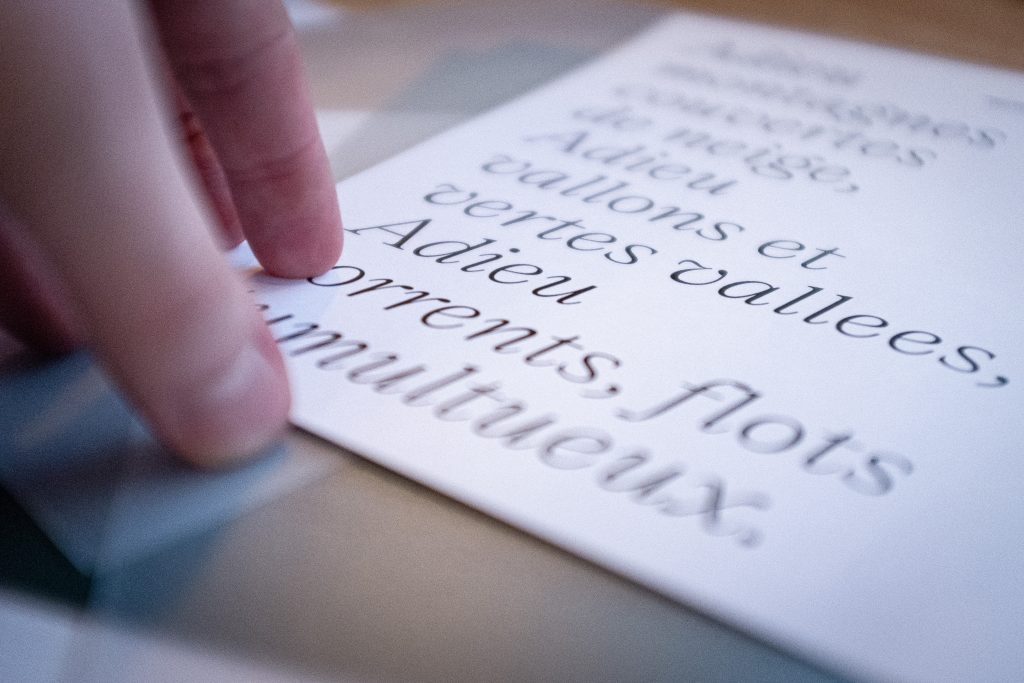 Adieu
montagnes
couvertes
de neige,
Adieu
vallons et
vertes vallees,
Adieu
torrents, flots
tumultueux.